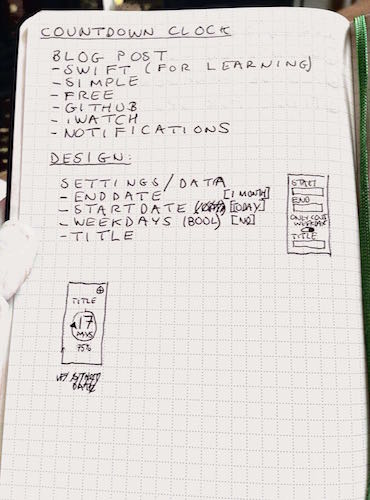 COUNTDOWN CLOCK
BLOG POST
- SWIFT (FOR LEARNING)
- SIMPLE
- FREE
- GITHUB
- iWATCH
- NOTIFICATIONS
DESIGN:
SETTINGS/DATA
- ENDDATE [1 MONTH]
- STARTDATE [0DAY]
- WEEKDAYS (BOOL) [NO]
- TITLE
START
END
ONLY COUNT
WEEKDAY
TITLE
TITLE
17
75%